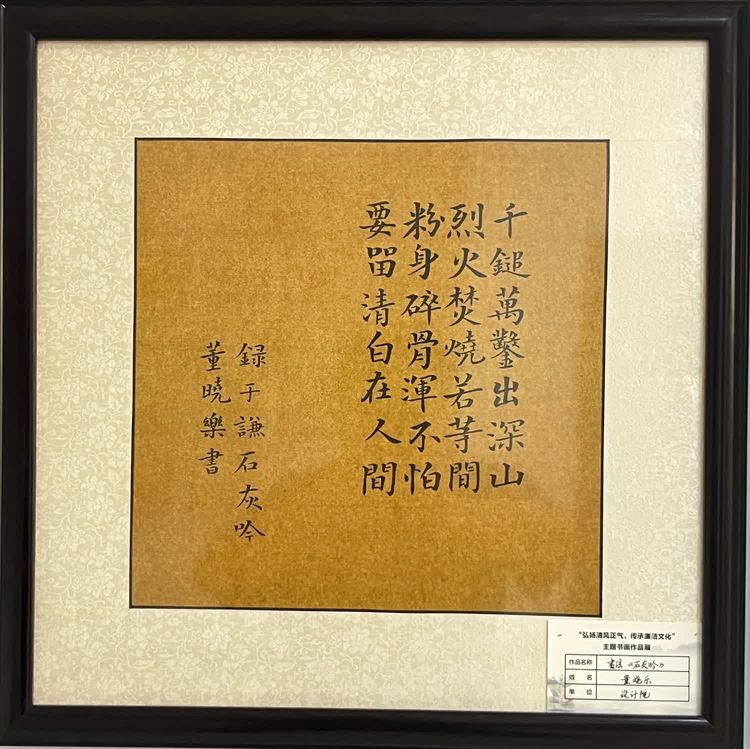 千鎚萬鑿出深山
烈火焚燒若等閒
粉身碎骨渾不怕
要留清白在人間
録于謙石灰吟
董曉樂書
“弘扬清风正气、传承廉洁文化”
主题书画作品展
作品名称 书法《石灰吟》
姓名 董晓乐
单位 设计院